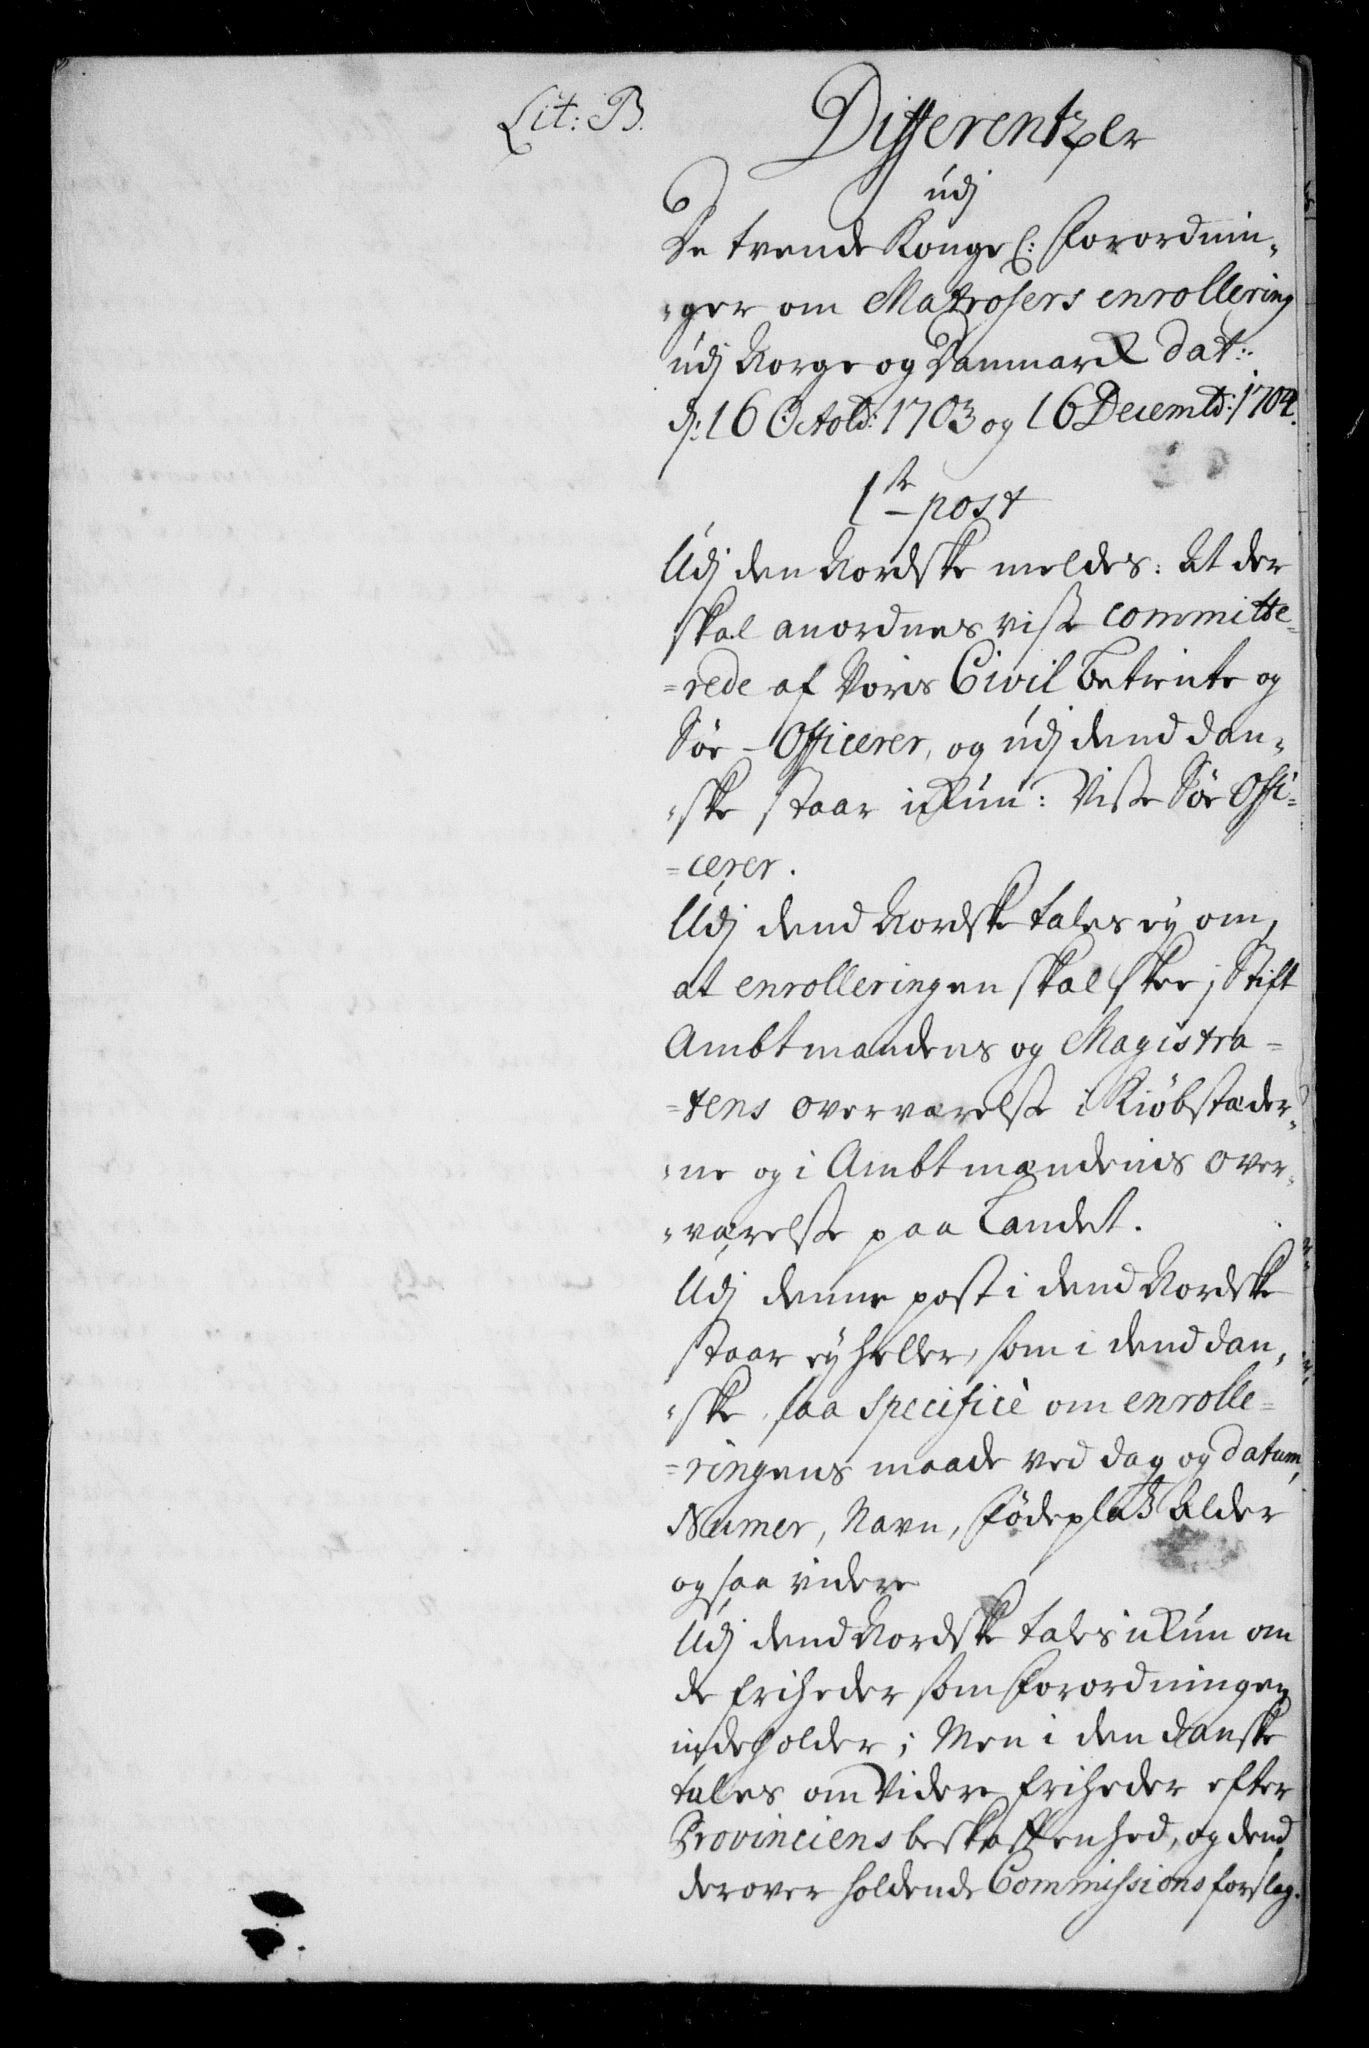 Lit: B.
Differentzer
udj
De tvende Kongel: Forordnin-
-ger om Matrosers enrollering
udj Norge og Danmark dat:
d: 16 Octob: 1703 og 16 Decemb: 1704.
1ste post
Udj den Nordske meldes: At der
skal anordnes visse committe=
=rede af Voris Civil betiente og
Søe-Officerer, og udj dend dan-
-ske staar ickun: Visse Søe Offi=
=cerer.
Udj dend Nordske tales ey om,
at enrolleringen skal skee j Stift
Ambtmandens og Magistra=
=tens overværelse i Kiøbstæder-
-ne og i Ambtmandens over-
-værelse paa Landet.
Udj denne post i dend Nordske
staar ey heller, som i dend dan-
-ske, saa specificè om enrolle=
=ringens maade ved dag og datum,
Numer, Navn, fødeplatz Alder
og saa videre
Udj dend Nordske tales ickun om
de friheder som Forordningen
indeholder; Men i den danske
tales om Videre friheder efter
Provinciens beskaffenhed, og dend
derover holdende Commissions forslag.